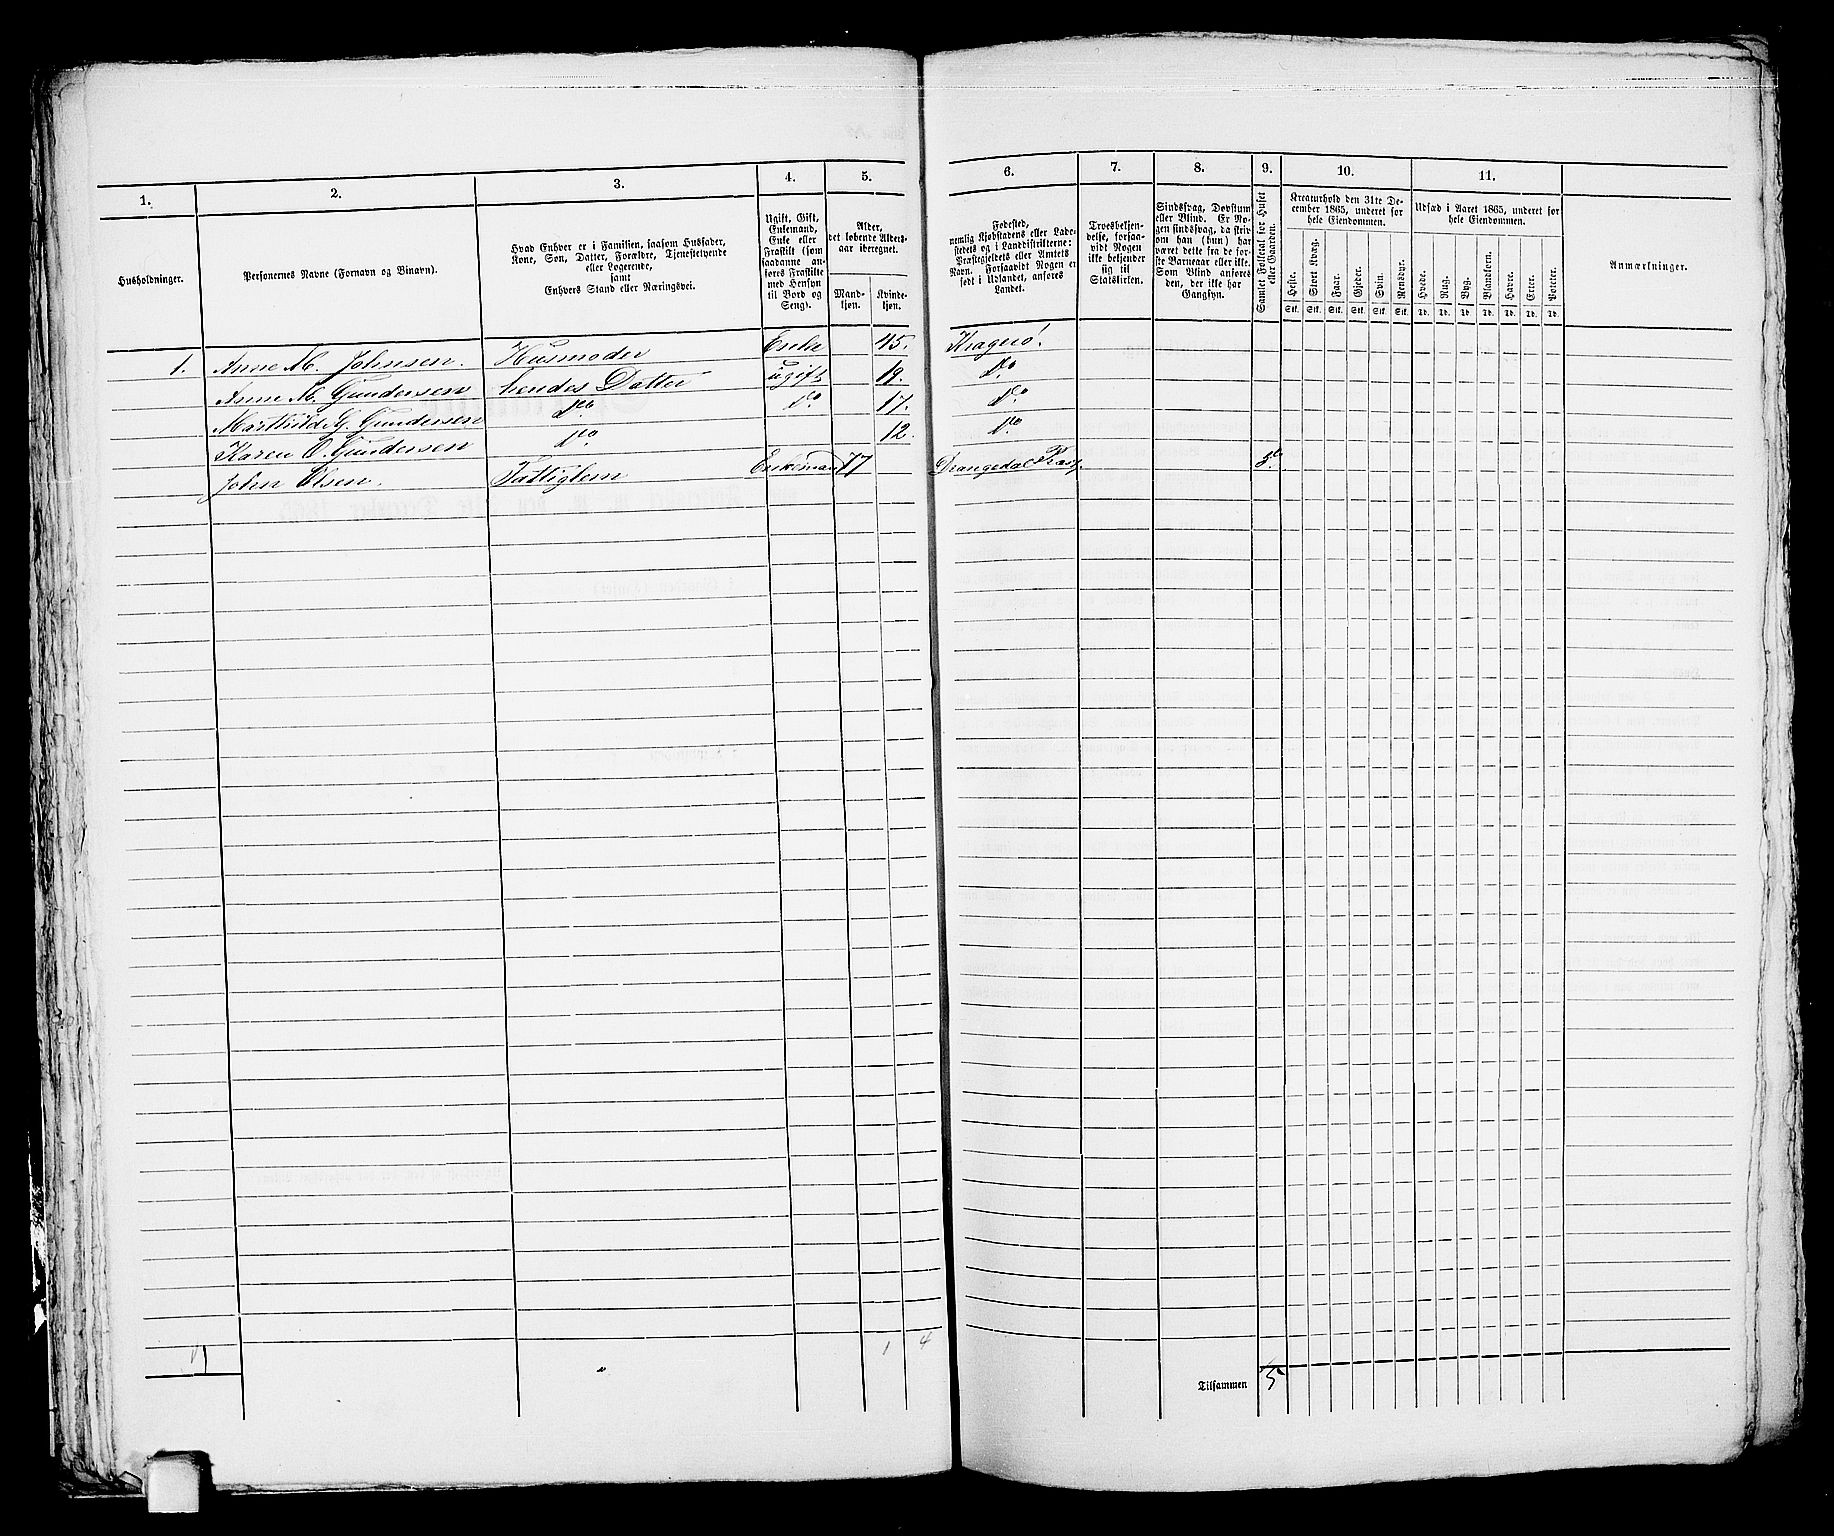 1.
2.
3.
4.
5.
6.
7.
8.
9.
10.
11.
Husholdninger.
Personernes Navne (Fornavn og Binavn).
Hvad Enhver er i Familien, saasom Husfader,
Kone, Søn, Datter, Forældre, Tjenestetyende
eller Logerende,
samt
Enhvers Stand eller Næringsvei.
Ugift, Gift,
Enkemand,
Enke eller
Fraskilt (som
saadanne an-
føres Fraskilte
med Hensyn
til Bord og
Seng).
Alder,
det løbende Alders-
aar iberegnet.
Mand-
kjøn.
Kvinde-
kjøn.
Fødested,
nemlig Kjøbstadens eller Lade-
stedets og i Landdistrikterne:
Præstegjeldets eller Amtets
Navn. Forsaavidt Nogen er
født i Udlandet, anføres
Landet.
Troesbekjen-
delse, forsaa-
vidt Nogen
ikke bekjender
sig til
Statskirken.
Sindssvag, Døvstum
eller Blind. Er No-
gen sindssvag, da skriv
om han (hun) har
været dette fra de før-
ste Barneaar eller ikke.
Som Blind anføres
den, der ikke har
Gangsyn.
Samlet Folketal for Huset
eller Gaarden.
Kreaturhold den 31te De-
cember 1865, underet for
hele Eiendommen.
Udsæd i Aaret 1865, underet for
hele Eiendommen.
Heste.
Stort Kvæg.
Faar.
Gjeder.
Svin.
Rensdyr.
Hvede.
Rug.
Byg.
Blandkorn.
Havre.
Erter.
Poteter.
Stk. Stk. Stk. Stk. Stk. Stk. Td. Td. Td. Td. Td. Td. Td.
Anmærkninger.
1. Anne M. Johnsen. Husmoder Enke 45. Kragerø.
Anne M. Gundersen hendes Datter ugift 19. Do
Marthild G. Gundersen Do Do 17. Do
Karen O. Gundersen Do 12. Do
John Olsen. Fattiglem Enkemand 77 Drangedal Præstg. 5.
1 1 4
Tilsammen 5